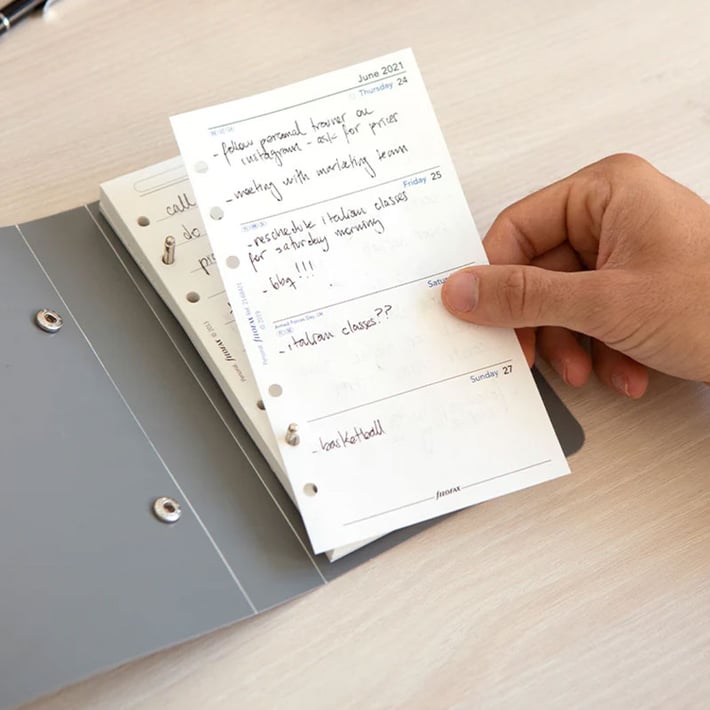 June 2021
Thursday 24
- follow personal trainer on
instagram - ask for prices
- meeting with marketing team
Friday 25
- reschedule italian classes
for saturday morning
- bbq!!!
Armed Forces Day, UK
- italian classes??
Sunday 27
- basketball
filofax
Personal filofax © 2019
call
do
Personal filofax © 2013